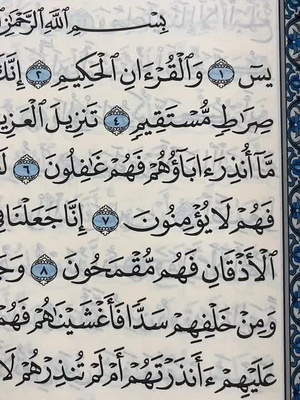 بِسْمِ ٱللَّهِ ٱلرَّحْمَٰنِ
يسٓ ١ وَٱلْقُرْءَانِ ٱلْحَكِيمِ ٢ إِنَّكَ
صِرَٰطٍ مُّسْتَقِيمٍ ٤ تَنزِيلَ ٱلْعَزِيزِ
مَّآ أُنذِرَ ءَابَآؤُهُمْ فَهُمْ غَٰفِلُونَ ٦
فَهُمْ لَا يُؤْمِنُونَ ٧ إِنَّا جَعَلْنَا فِي
ٱلْأَذْقَانِ فَهُم مُّقْمَحُونَ ٨
وَمِنْ خَلْفِهِمْ سَدًّا فَأَغْشَيْنَٰهُمْ فَهُمْ
عَلَيْهِمْ ءَأَنذَرْتَهُمْ أَمْ لَمْ تُنذِرْهُمْ لَا